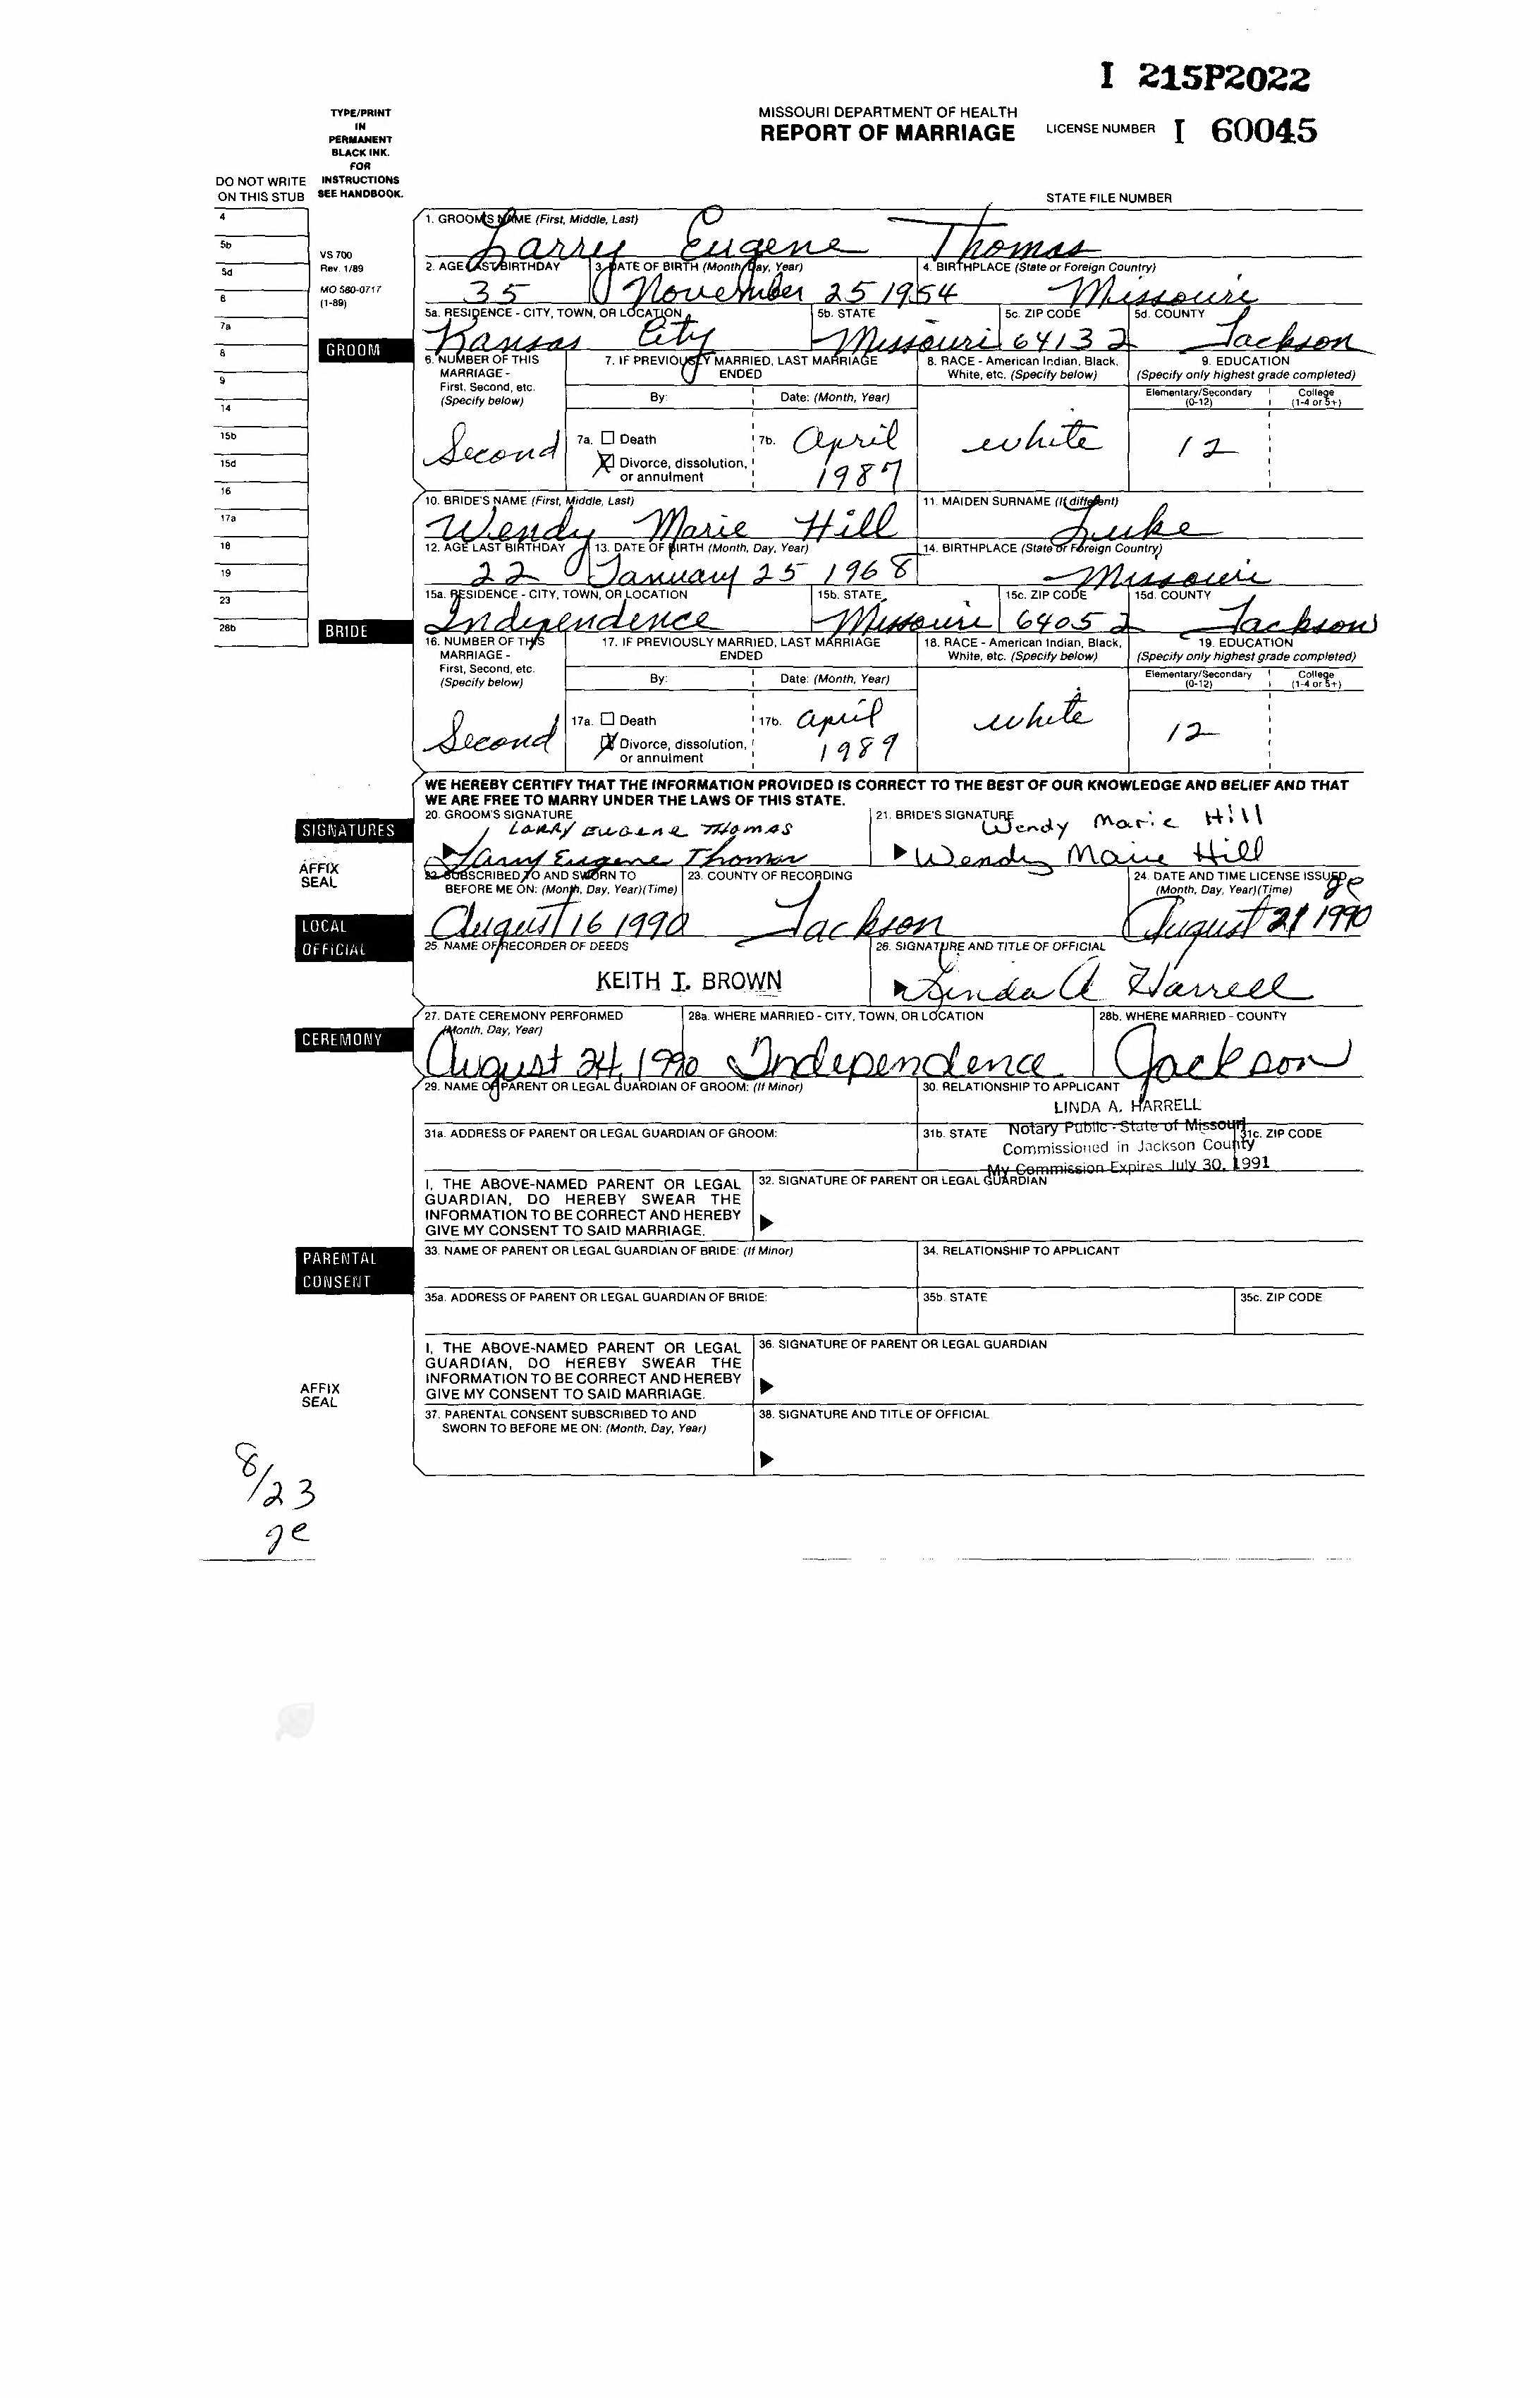 I 215P2022
TYPE/PRINT
IN
PERMANENT
BLACK INK.
FOR
INSTRUCTIONS
SEE HANDBOOK.
MISSOURI DEPARTMENT OF HEALTH
REPORT OF MARRIAGE
LICENSE NUMBER I 60045
DO NOT WRITE
ON THIS STUB
STATE FILE NUMBER
4
5b
5d
6
7a
8
9
14
15b
15d
16
17a
18
19
23
28b
VS 700
Rev. 1/89
MO 580-0717
(1-89)
GROOM
1. GROOM'S NAME (First, Middle, Last)
Larry Eugene Thomas
2. AGE LAST BIRTHDAY 3. DATE OF BIRTH (Month, Day, Year) 4. BIRTHPLACE (State or Foreign Country)
35 November 25 1954 Missouri
5a. RESIDENCE - CITY, TOWN, OR LOCATION 5b. STATE 5c. ZIP CODE 5d. COUNTY
Kansas City Missouri 64132 Jackson
6. NUMBER OF THIS MARRIAGE - First, Second, etc. (Specify below)
7. IF PREVIOUSLY MARRIED, LAST MARRIAGE ENDED
By: Date: (Month, Year)
8. RACE - American Indian, Black, White, etc. (Specify below)
9. EDUCATION (Specify only highest grade completed)
Elementary/Secondary (0-12) College (1-4 or 5+)
Second 7a. Death 7b. April white 12
X Divorce, dissolution, or annulment 1987
BRIDE
10. BRIDE'S NAME (First, Middle, Last) 11. MAIDEN SURNAME (If different)
Wendy Marie Hill Luke
12. AGE LAST BIRTHDAY 13. DATE OF BIRTH (Month, Day, Year) 14. BIRTHPLACE (State or Foreign Country)
22 January 25 1968 Missouri
15a. RESIDENCE - CITY, TOWN, OR LOCATION 15b. STATE 15c. ZIP CODE 15d. COUNTY
Independence Missouri 64052 Jackson
16. NUMBER OF THIS MARRIAGE - First, Second, etc. (Specify below)
17. IF PREVIOUSLY MARRIED, LAST MARRIAGE ENDED
By: Date: (Month, Year)
18. RACE - American Indian, Black, White, etc. (Specify below)
19. EDUCATION (Specify only highest grade completed)
Elementary/Secondary (0-12) College (1-4 or 5+)
Second 17a. Death 17b. April white 12
X Divorce, dissolution, or annulment 1989
WE HEREBY CERTIFY THAT THE INFORMATION PROVIDED IS CORRECT TO THE BEST OF OUR KNOWLEDGE AND BELIEF AND THAT
WE ARE FREE TO MARRY UNDER THE LAWS OF THIS STATE.
SIGNATURES
20. GROOM'S SIGNATURE 21. BRIDE'S SIGNATURE
Larry Eugene Thomas Wendy Marie Hill
Larry Eugene Thomas Wendy Marie Hill
AFFIX
SEAL
22. SUBSCRIBED TO AND SWORN TO BEFORE ME ON: (Month, Day, Year)(Time)
23. COUNTY OF RECORDING
24. DATE AND TIME LICENSE ISSUED (Month, Day, Year)(Time)
ge
August 16 1990 Jackson August 21 1990
LOCAL
OFFICIAL
25. NAME OF RECORDER OF DEEDS 26. SIGNATURE AND TITLE OF OFFICIAL
KEITH I. BROWN Linda A Harrell
CEREMONY
27. DATE CEREMONY PERFORMED (Month, Day, Year) 28a. WHERE MARRIED - CITY, TOWN, OR LOCATION 28b. WHERE MARRIED - COUNTY
August 24, 1990 Independence Jackson
29. NAME OF PARENT OR LEGAL GUARDIAN OF GROOM: (If Minor) 30. RELATIONSHIP TO APPLICANT
LINDA A. HARRELL
Notary Public - State of Missouri
Commissioned in Jackson County
My Commission Expires July 30, 1991
31a. ADDRESS OF PARENT OR LEGAL GUARDIAN OF GROOM: 31b. STATE 31c. ZIP CODE
I, THE ABOVE-NAMED PARENT OR LEGAL
GUARDIAN, DO HEREBY SWEAR THE
INFORMATION TO BE CORRECT AND HEREBY
GIVE MY CONSENT TO SAID MARRIAGE.
32. SIGNATURE OF PARENT OR LEGAL GUARDIAN
PARENTAL
CONSENT
33. NAME OF PARENT OR LEGAL GUARDIAN OF BRIDE: (If Minor) 34. RELATIONSHIP TO APPLICANT
35a. ADDRESS OF PARENT OR LEGAL GUARDIAN OF BRIDE: 35b. STATE 35c. ZIP CODE
I, THE ABOVE-NAMED PARENT OR LEGAL
GUARDIAN, DO HEREBY SWEAR THE
INFORMATION TO BE CORRECT AND HEREBY
GIVE MY CONSENT TO SAID MARRIAGE.
36. SIGNATURE OF PARENT OR LEGAL GUARDIAN
AFFIX
SEAL
37. PARENTAL CONSENT SUBSCRIBED TO AND
SWORN TO BEFORE ME ON: (Month, Day, Year)
38. SIGNATURE AND TITLE OF OFFICIAL
8/23
ge